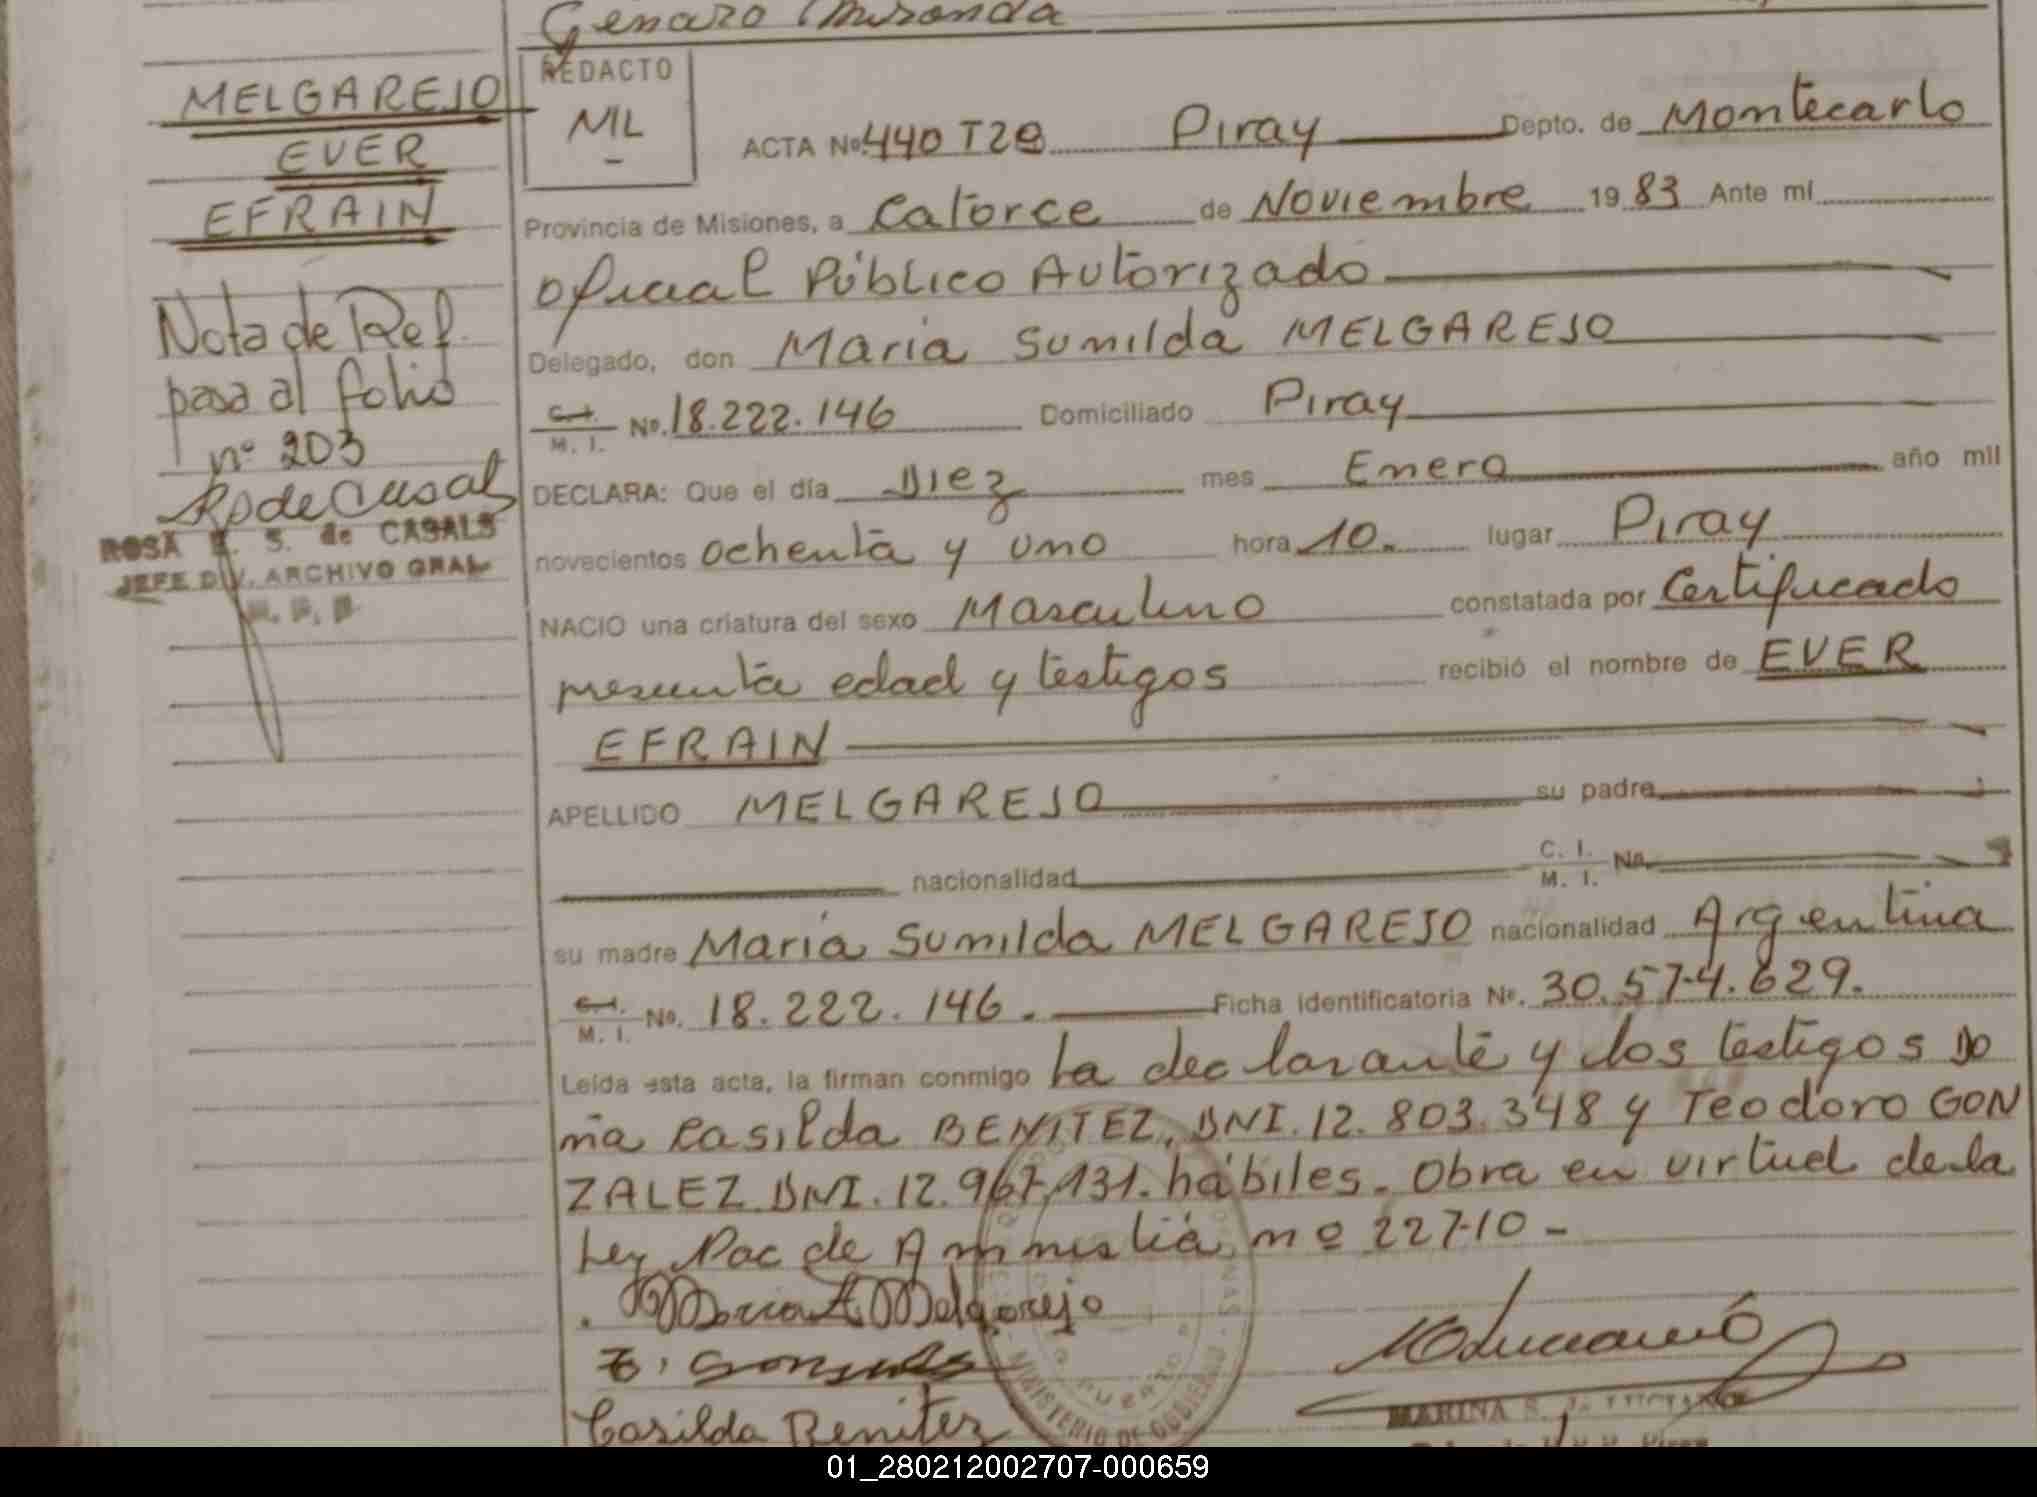 Genaro Miranda
MELGAREJO
EVER
EFRAIN
Nota de Ref.
pasa al folio
nº 203
ROSA E. S. de CASALS
JEFE DIV. ARCHIVO GRAL
R. P. P
REDACTO
NIL
ACTA Nº 440 T2º Piray Depto. de Montecarlo
Provincia de Misiones, a Catorce de Noviembre 1983 Ante mí
Oficial Público Autorizado
Delegado, don Maria Sunilda MELGAREJO
C.I. M. I. No. 18.222.146 Domiciliado Piray
DECLARA: Que el día Diez mes Enero año mil
novecientos ochenta y uno hora 10. lugar Piray
NACIO una criatura del sexo Masculino constatada por Certificado
presunta edad y testigos recibió el nombre de EVER
EFRAIN
APELLIDO MELGAREJO su padre
nacionalidad C. I. M. I. No.
su madre María Sunilda MELGAREJO nacionalidad Argentina
C.I. M. I. No. 18.222.146. Ficha identificatoria Nº. 30.574.629.
Leída esta acta, la firman conmigo La declarante y los testigos Do
ña Casilda BENITEZ, DNI. 12.803.348 y Teodoro GON
ZALEZ DNI. 12.967.131. hábiles. Obra en virtud de la
Ley Nac de Amnistia nº 22710 -
Maria A Melgarejo
Casilda Benitez
MINISTERIO DE GOBIERNO
MARINA S. de
01_280212002707-000659